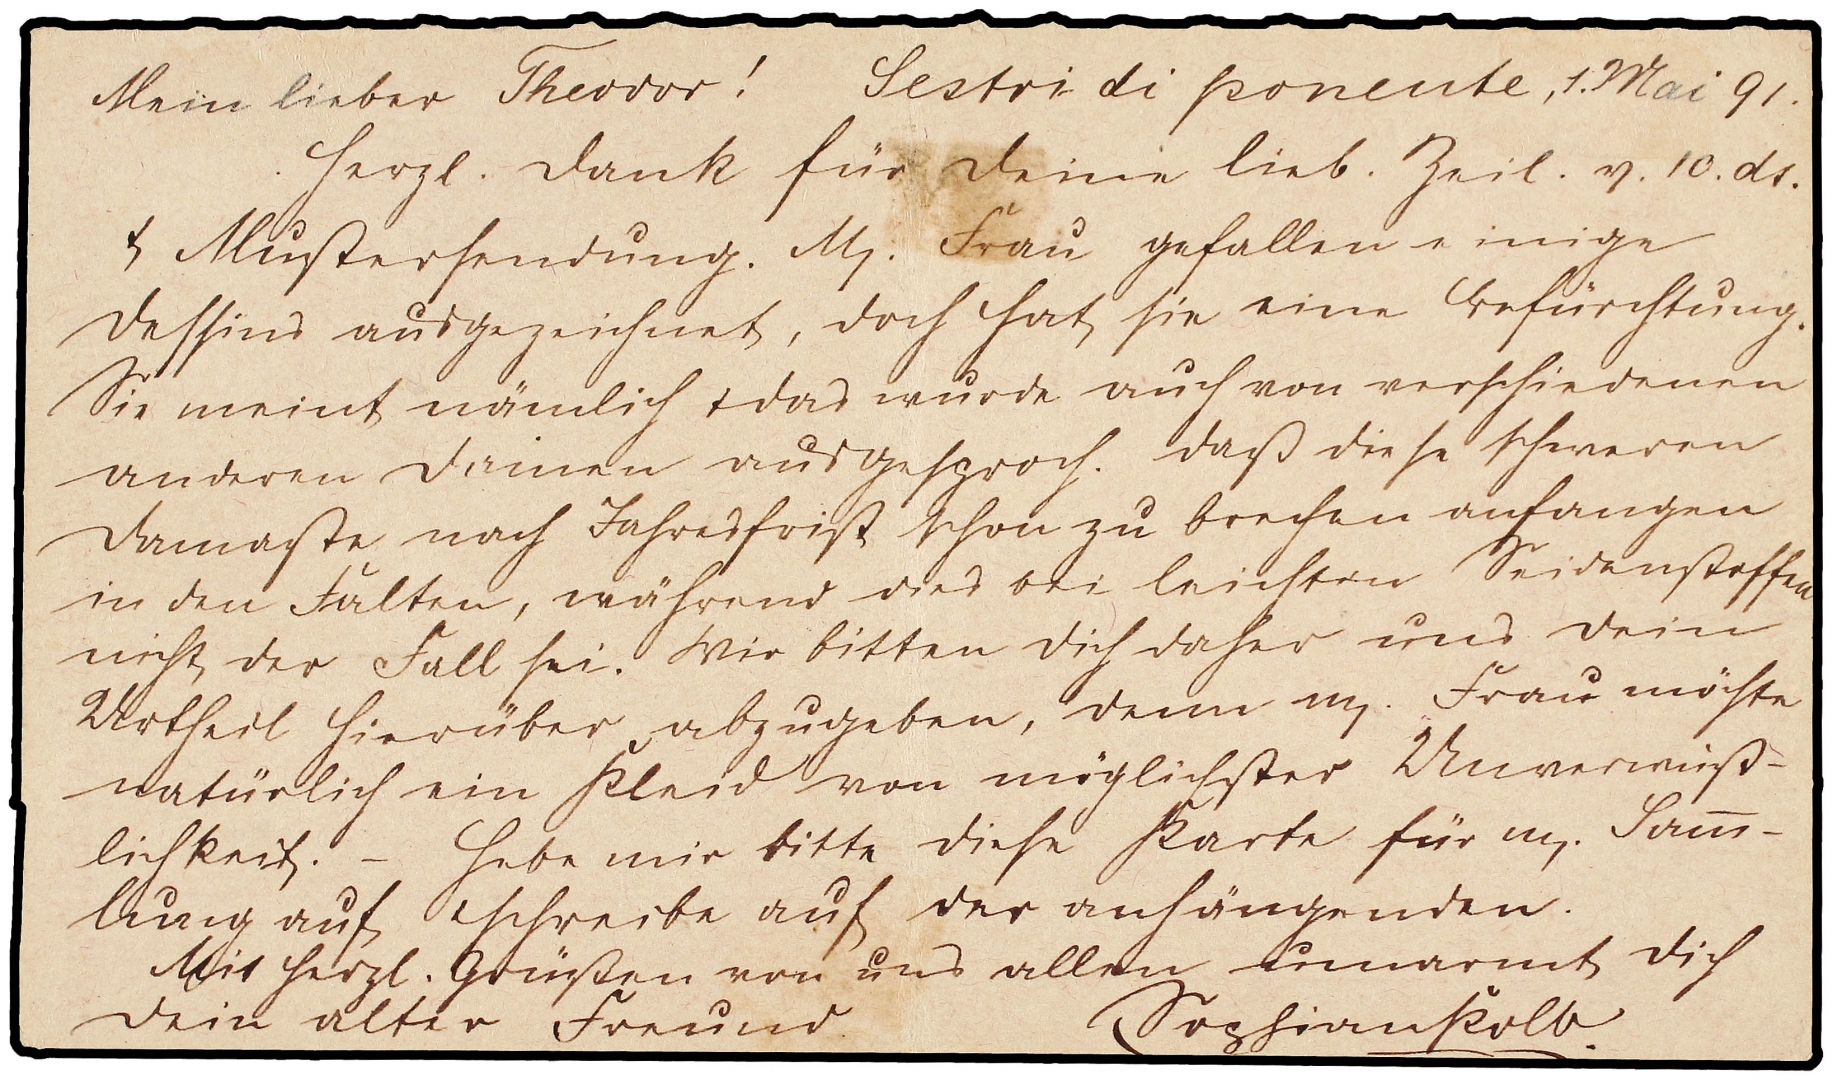 Mein lieber Theodor! Sestri di ponente, 1. Mai 91.
Herzl. Dank für Deine lieb. Zeil. v. 10. ds.
& Mustersendung. M. Frau gefallen einige
Dessins ausgezeichnet, doch hat sie eine Befürchtung.
Sie meint nämlich & das wurde auch von verschiedenen
anderen Damen ausgesproch. daß diese schweren
Damaste nach Jahresfrist schon zu brechen anfangen
in den Falten, während dies bei leichten Seidenstoffen
nicht der Fall sei. Wir bitten Dich daher uns Dein
Urtheil hierüber abzugeben, denn m. Frau möchte
natürlich ein Kleid von möglichster Unverwüst-
lichkeit. – Hebe mir bitte diese Karte für m. Sam̄-
lung auf & schreibe auf der anhängenden.
Mit herzl. Grüßen von uns allen umarmt Dich
Dein alter Freund Kolb.